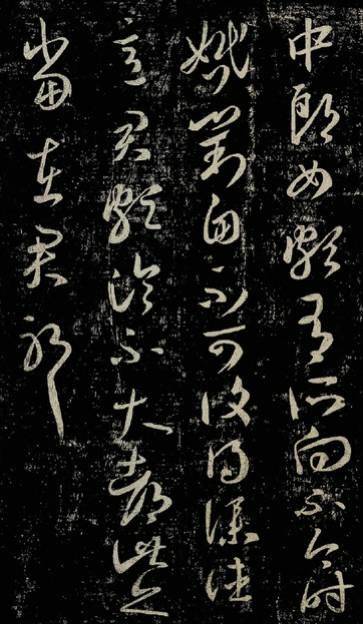 中郎女頗有所向不今時
婚對自不可復得僕往
意君頗論不大都此亦
當在君耶